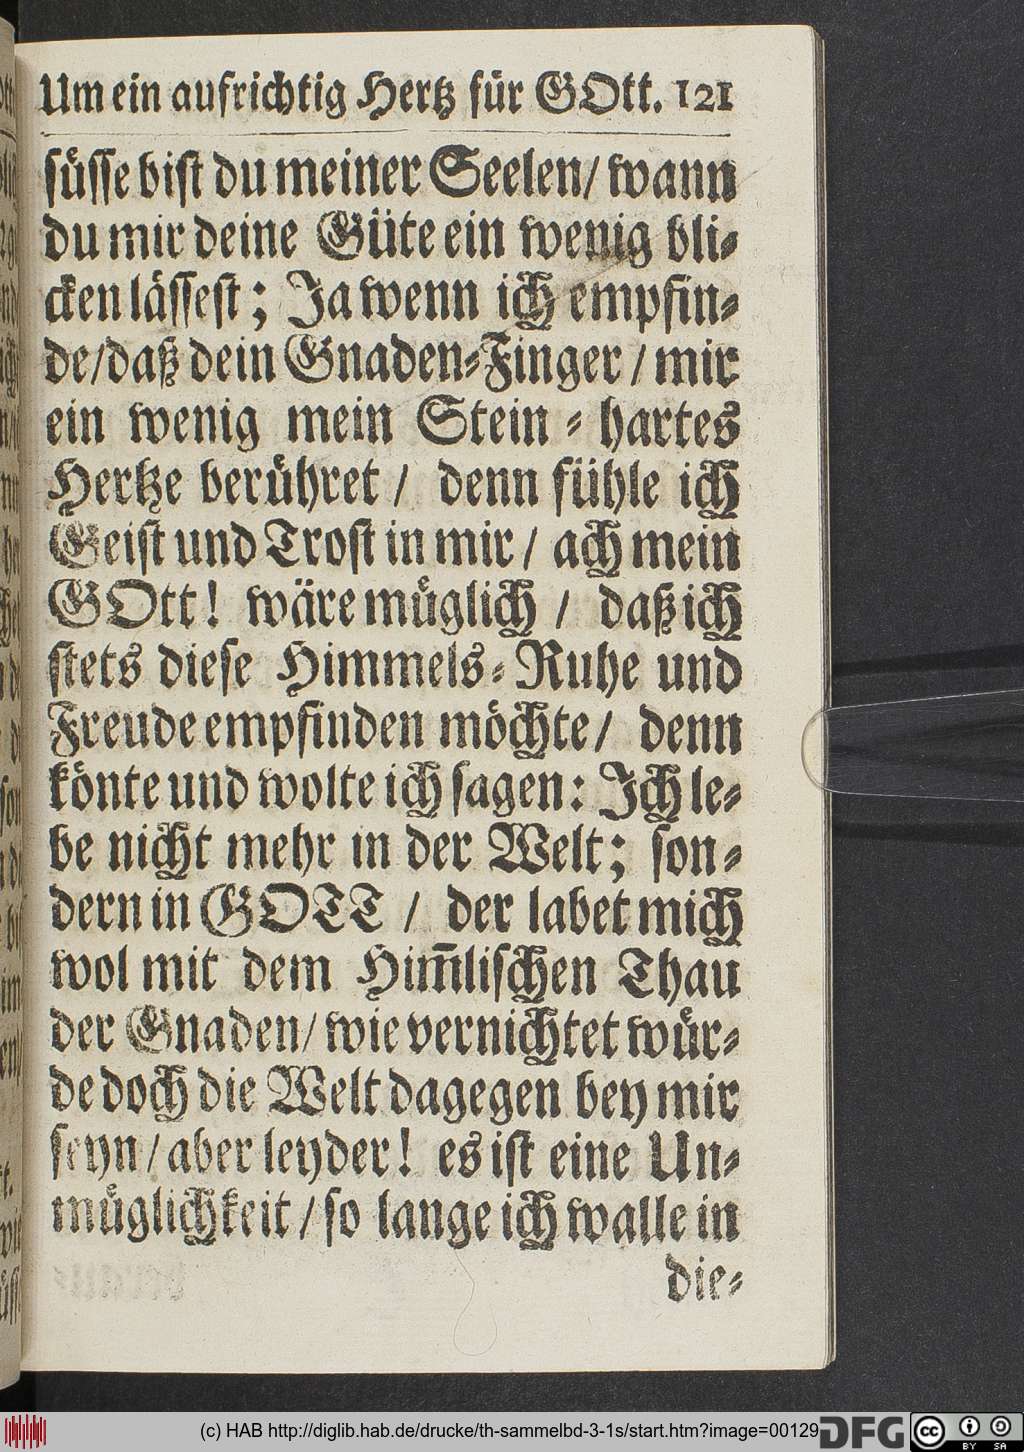 Um ein aufrichtig Hertz für GOtt. 121
süsse bist du meiner Seelen/ wann
du mir deine Güte ein wenig bli⸗
cken lässest; Ja wenn ich empfin⸗
de/daß dein Gnaden⸗Finger / mir
ein wenig mein Stein ⸗ hartes
Hertze berühret / denn fühle ich
Geist und Trost in mir / ach mein
GOtt! wäre müglich / daß ich
stets diese Himmels⸗Ruhe und
Freude empfinden möchte/ denn
könte und wolte ich sagen: Ich le⸗
be nicht mehr in der Welt; son⸗
dern in GOTT / der labet mich
wol mit dem Him̄lischen Thau
der Gnaden/ wie vernichtet wür⸗
de doch die Welt dagegen bey mir
seyn / aber leyder! es ist eine Un⸗
müglichkeit / so lange ich walle in
die⸗
(c) HAB http://diglib.hab.de/drucke/th-sammelbd-3-1s/start.htm?image=00129
DFG
cc BY SA